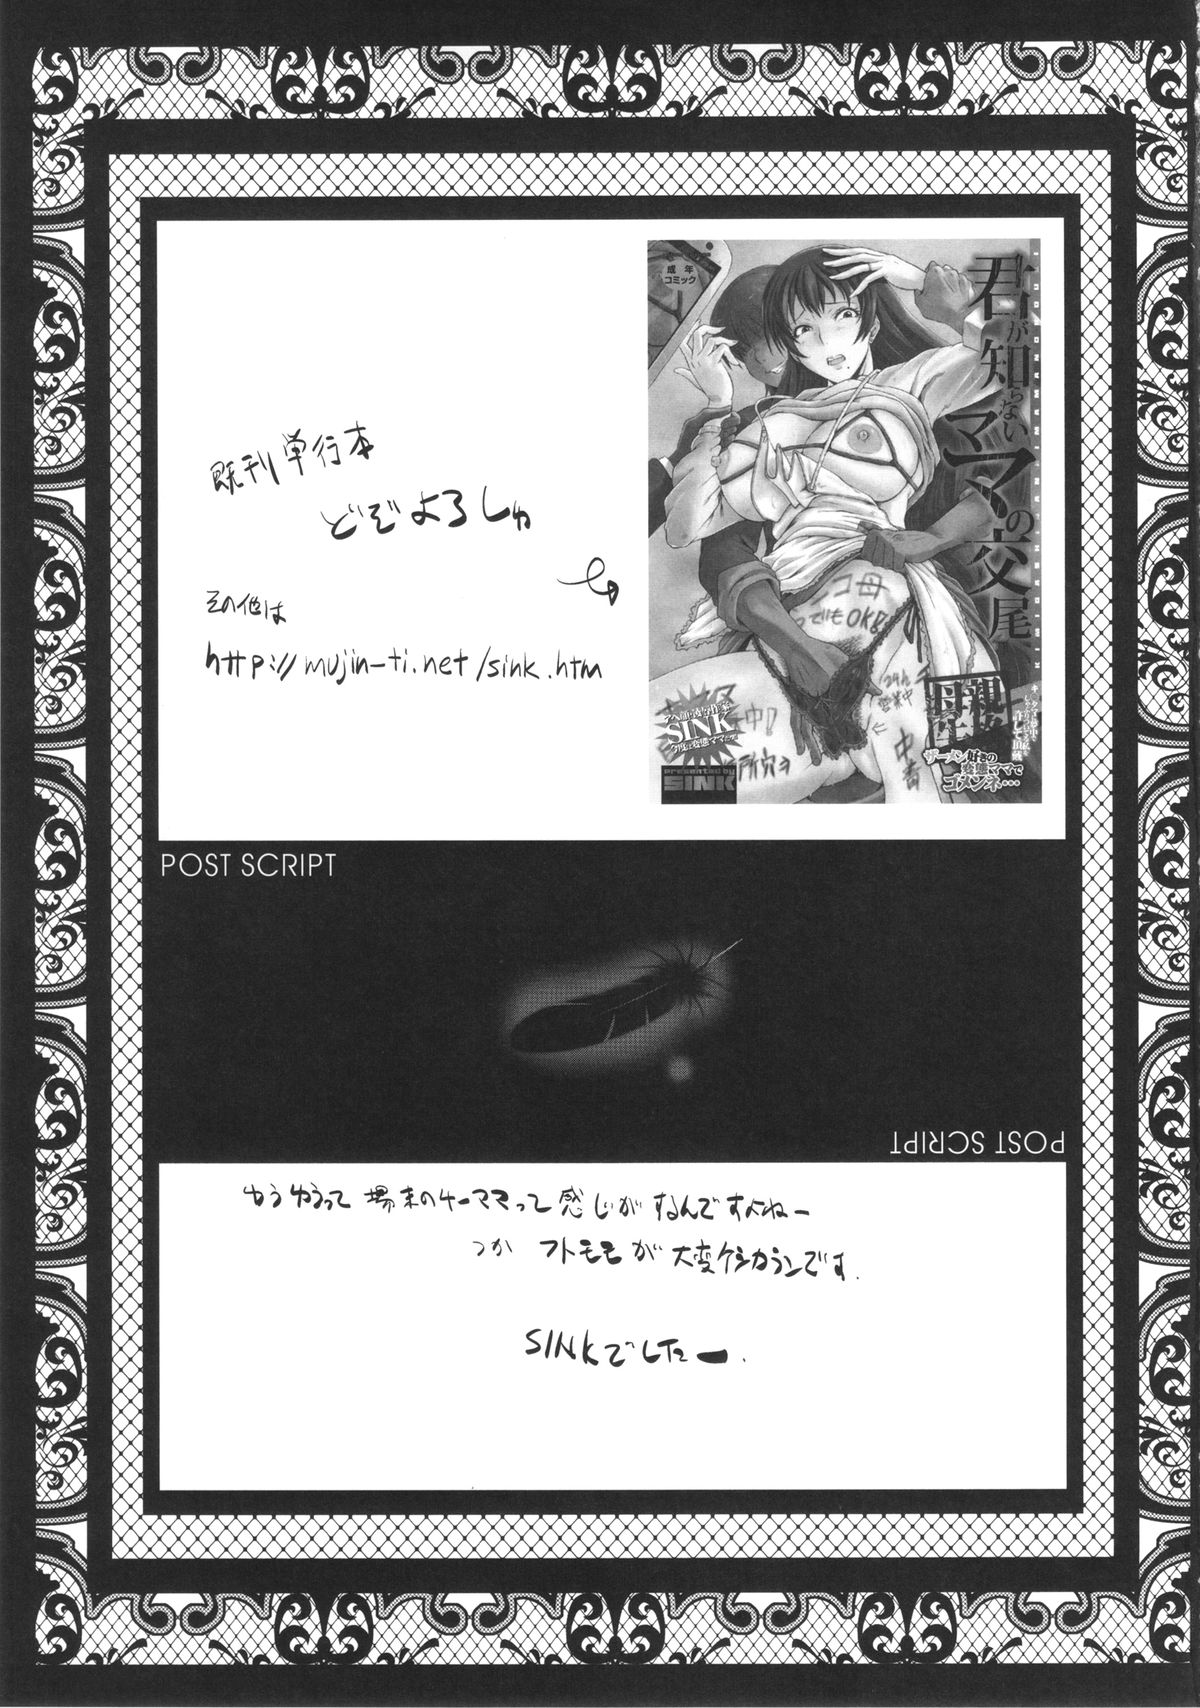 既刊単行本
どぞよろしゅ
その他は
http://mujin-ti.net/sink.htm
成年
コミック
君が知らないママの交尾
SINK
presented by
SINK
ザーメン好きの
変態ママで
ゴメンネ…
POST SCRIPT
POST SCRIPT
ゆうゆうって 場末のチーママって感じがするんですよねー
つか フトモモが 大変ケシカランです.
SINKでしたー.